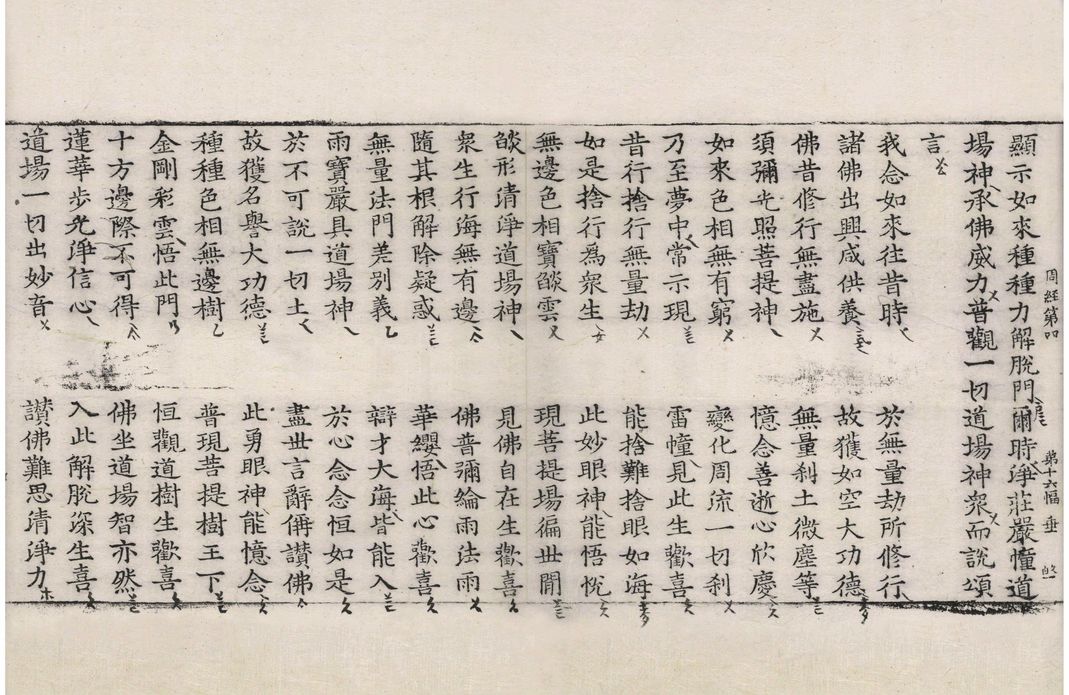 周經第四 第十六幅 垂
顯示如來種種力解脫門爾時淨莊嚴幢道
場神承佛威力普觀一切道場神衆而說頌
言
我念如來往昔時 於無量劫所修行
諸佛出興咸供養 故獲如空大功德
佛昔修行無盡施 無量刹土微塵等
須彌光照菩提神 憶念善逝心欣慶
如來色相無有窮 變化周流一切刹
乃至夢中常示現 雷幢見此生歡喜
昔行捨行無量劫 能捨難捨眼如海
如是捨行爲衆生 此妙眼神能悟悅
無邊色相寶燄雲 現菩提場徧世間
燄形清淨道場神 見佛自在生歡喜
衆生行海無有邊 佛普彌綸雨法雨
隨其根解除疑惑 華纓悟此心歡喜
無量法門差別義 辯才大海皆能入
雨寶嚴具道場神 於心念念恒如是
於不可說一切土 盡世言辭稱讚佛
故獲名譽大功德 此勇眼神能憶念
種種色相無邊樹 普現菩提樹王下
金剛彩雲悟此門 恒觀道樹生歡喜
十方邊際不可得 佛坐道場智亦然
蓮華步光淨信心 入此解脫深生喜
道場一切出妙音 讚佛難思清淨力